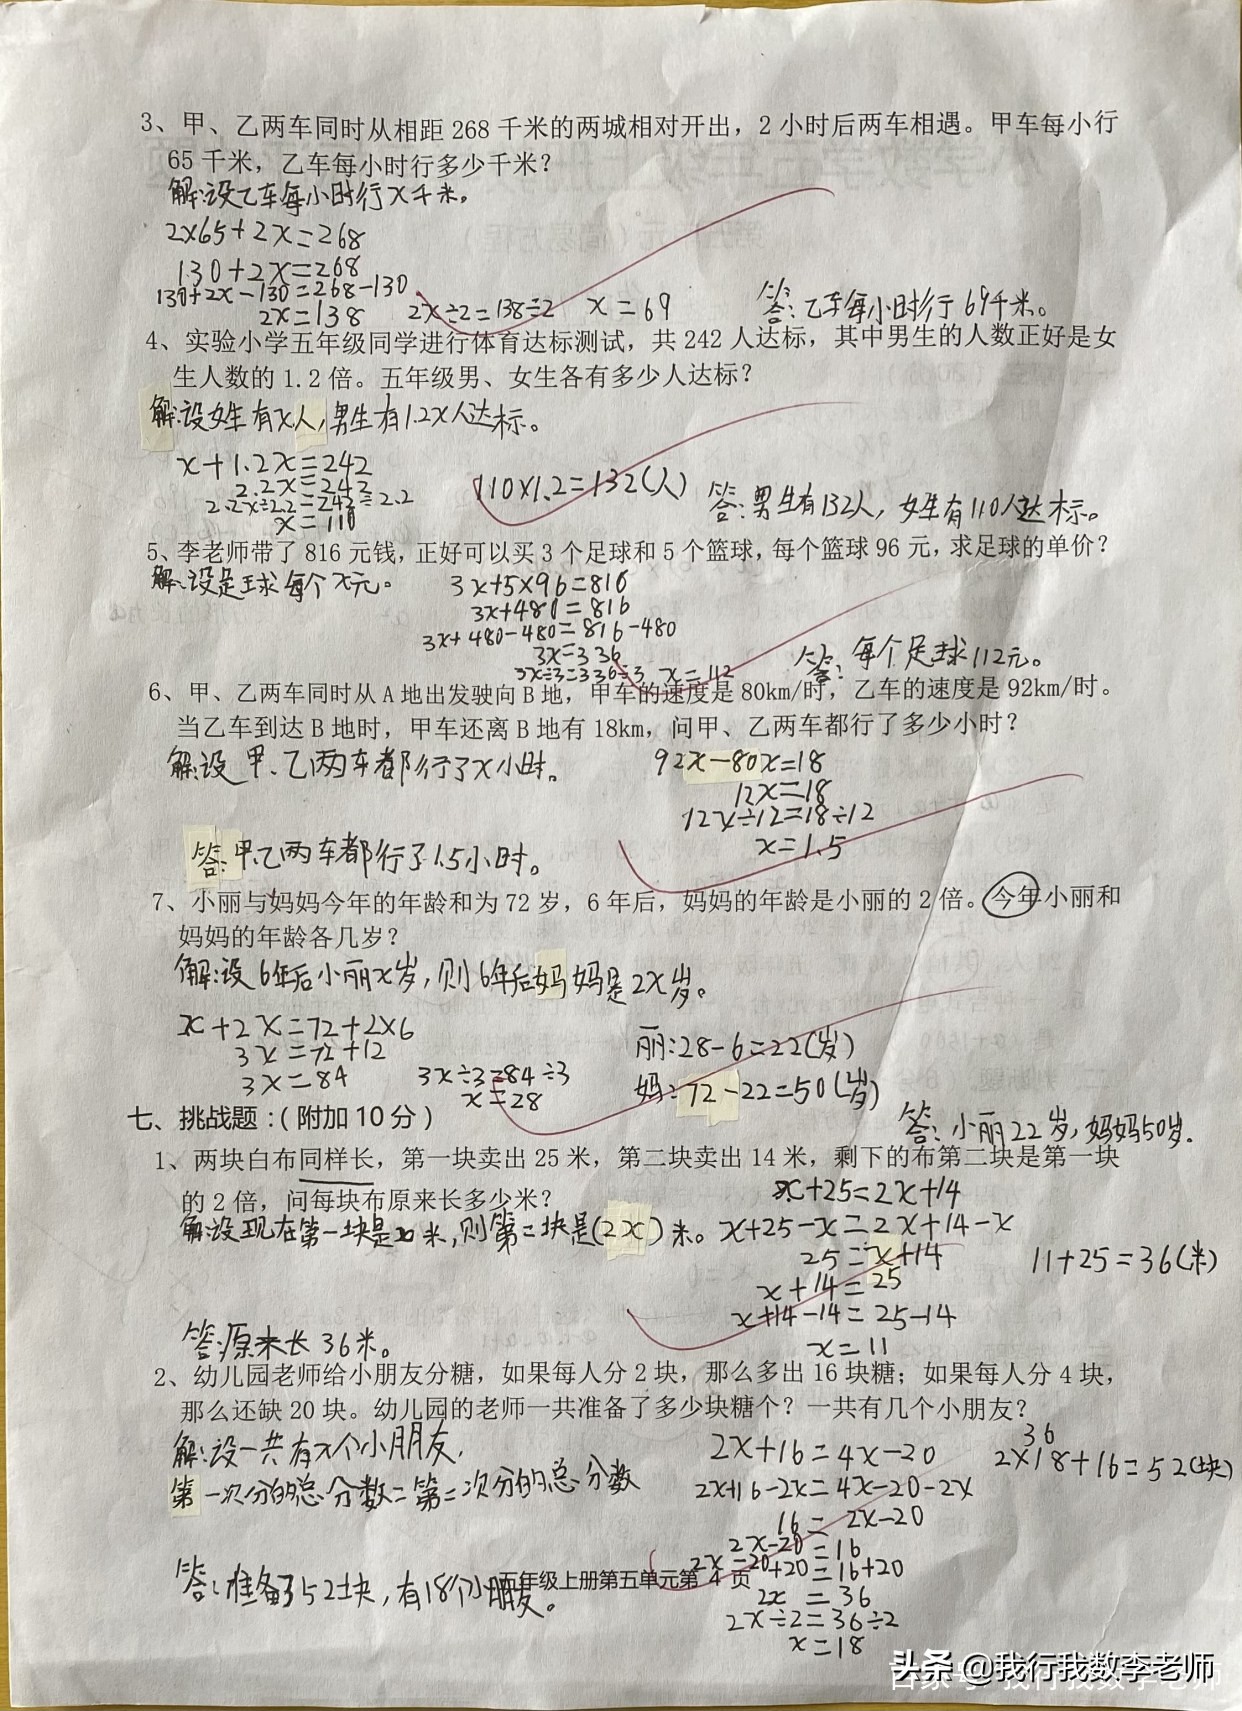 3、甲、乙两车同时从相距 268 千米的两城相对开出，2 小时后两车相遇。甲车每小行
65 千米，乙车每小时行多少千米？
解:设乙车每小时行x千米。
2×65+2x=268
130+2x=268
130+2x-130=268-130
2x=138 2x÷2=138÷2 x=69 答:乙车每小时行69千米。
4、实验小学五年级同学进行体育达标测试，共 242 人达标，其中男生的人数正好是女
生人数的 1.2 倍。五年级男、女生各有多少人达标？
解:设女生有x人,男生有1.2x人达标。
x+1.2x=242
2.2x=242
2.2x÷2.2=242÷2.2 110×1.2=132(人)
x=110 答:男生有132人，女生有110人达标。
5、李老师带了 816 元钱，正好可以买 3 个足球和 5 个篮球，每个篮球 96 元，求足球的单价？
解:设足球每个x元。 3x+5×96=816
3x+480=816
3x+480-480=816-480
3x=336 答:每个足球112元。
3x÷3=336÷3 x=112
6、甲、乙两车同时从 A 地出发驶向 B 地，甲车的速度是 80km/时，乙车的速度是 92km/时。
当乙车到达 B 地时，甲车还离 B 地有 18km，问甲、乙两车都行了多少小时？
解:设甲、乙两车都行了x小时。 92x-80x=18
12x=18
12x÷12=18÷12
x=1.5
答:甲乙两车都行了1.5小时。
7、小丽与妈妈今年的年龄和为 72 岁，6 年后，妈妈的年龄是小丽的 2 倍。今年小丽和
妈妈的年龄各几岁？
解:设6年后小丽x岁,则6年后妈妈是2x岁。
x+2x=72+2×6 丽:28-6=22(岁)
3x=72+12
3x=84 3x÷3=84÷3 妈:72-22=50(岁)
x=28
答:小丽22岁,妈妈50岁.
七、挑战题：（附加 10 分）
1、两块白布同样长，第一块卖出 25 米，第二块卖出 14 米，剩下的布第二块是第一块
的 2 倍，问每块布原来长多少米？ x+25=2x+14
解:设现在第一块是x米,则第二块是(2x)米。 x+25-x=2x+14-x
25=x+14 11+25=36(米)
x+14=25
x+14-14=25-14
答:原来长36米。 x=11
2、幼儿园老师给小朋友分糖，如果每人分 2 块，那么多出 16 块糖；如果每人分 4 块，
那么还缺 20 块。幼儿园的老师一共准备了多少块糖个？一共有几个小朋友？
解:设一共有x个小朋友, 2x+16=4x-20 36
2×18+16=52(块)
第一次分的总分数=第二次分的总分数 2x+16-2x=4x-20-2x
16=2x-20
2x-20=16
2x-20+20=16+20
答:准备了52块,有18个小朋友。 五年级上册第五单元第 4 页
2x=36
2x÷2=36÷2
x=18
头条 @我行我数李老师